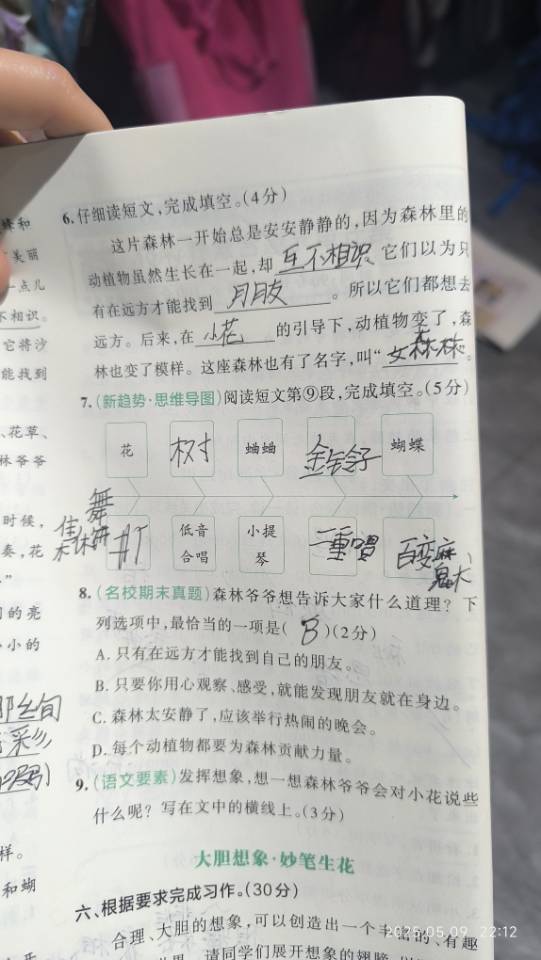 蜂和
美丽
一点儿
不相识。
它将沙
能找到
、花草、
林爷爷
时候,
奏,花
”
的亮
小的
样。
和蝴
6.仔细读短文,完成填空。(4分)
这片森林一开始总是安安静静的,因为森林里的
动植物虽然生长在一起,却互不相识,它们以为只
有在远方才能找到 朋友 。所以它们都想去
远方。后来,在 小花 的引导下,动植物变了,森
林也变了模样。这座森林也有了名字,叫“ 森林”。
7.(新趋势·思维导图)阅读短文第⑨段,完成填空。(5分)
花 树 蛐蛐 金铃子 蝴蝶
舞 低音合唱 小提琴 二重唱 百变麻
8.(名校期末真题)森林爷爷想告诉大家什么道理?下
列选项中,最恰当的一项是( B )(2分)
A.只有在远方才能找到自己的朋友。
B.只要你用心观察、感受,就能发现朋友就在身边。
C.森林太安静了,应该举行热闹的晚会。
D.每个动植物都要为森林贡献力量。
9.(语文要素)发挥想象,想一想森林爷爷会对小花说些
什么呢?写在文中的横线上。(3分)
大胆想象·妙笔生花
六、根据要求完成习作。(30分)
合理、大胆的想象,可以创造出一个丰富的、有趣
世界。请同学们展开想象的翅膀
2025.05.09 22:12